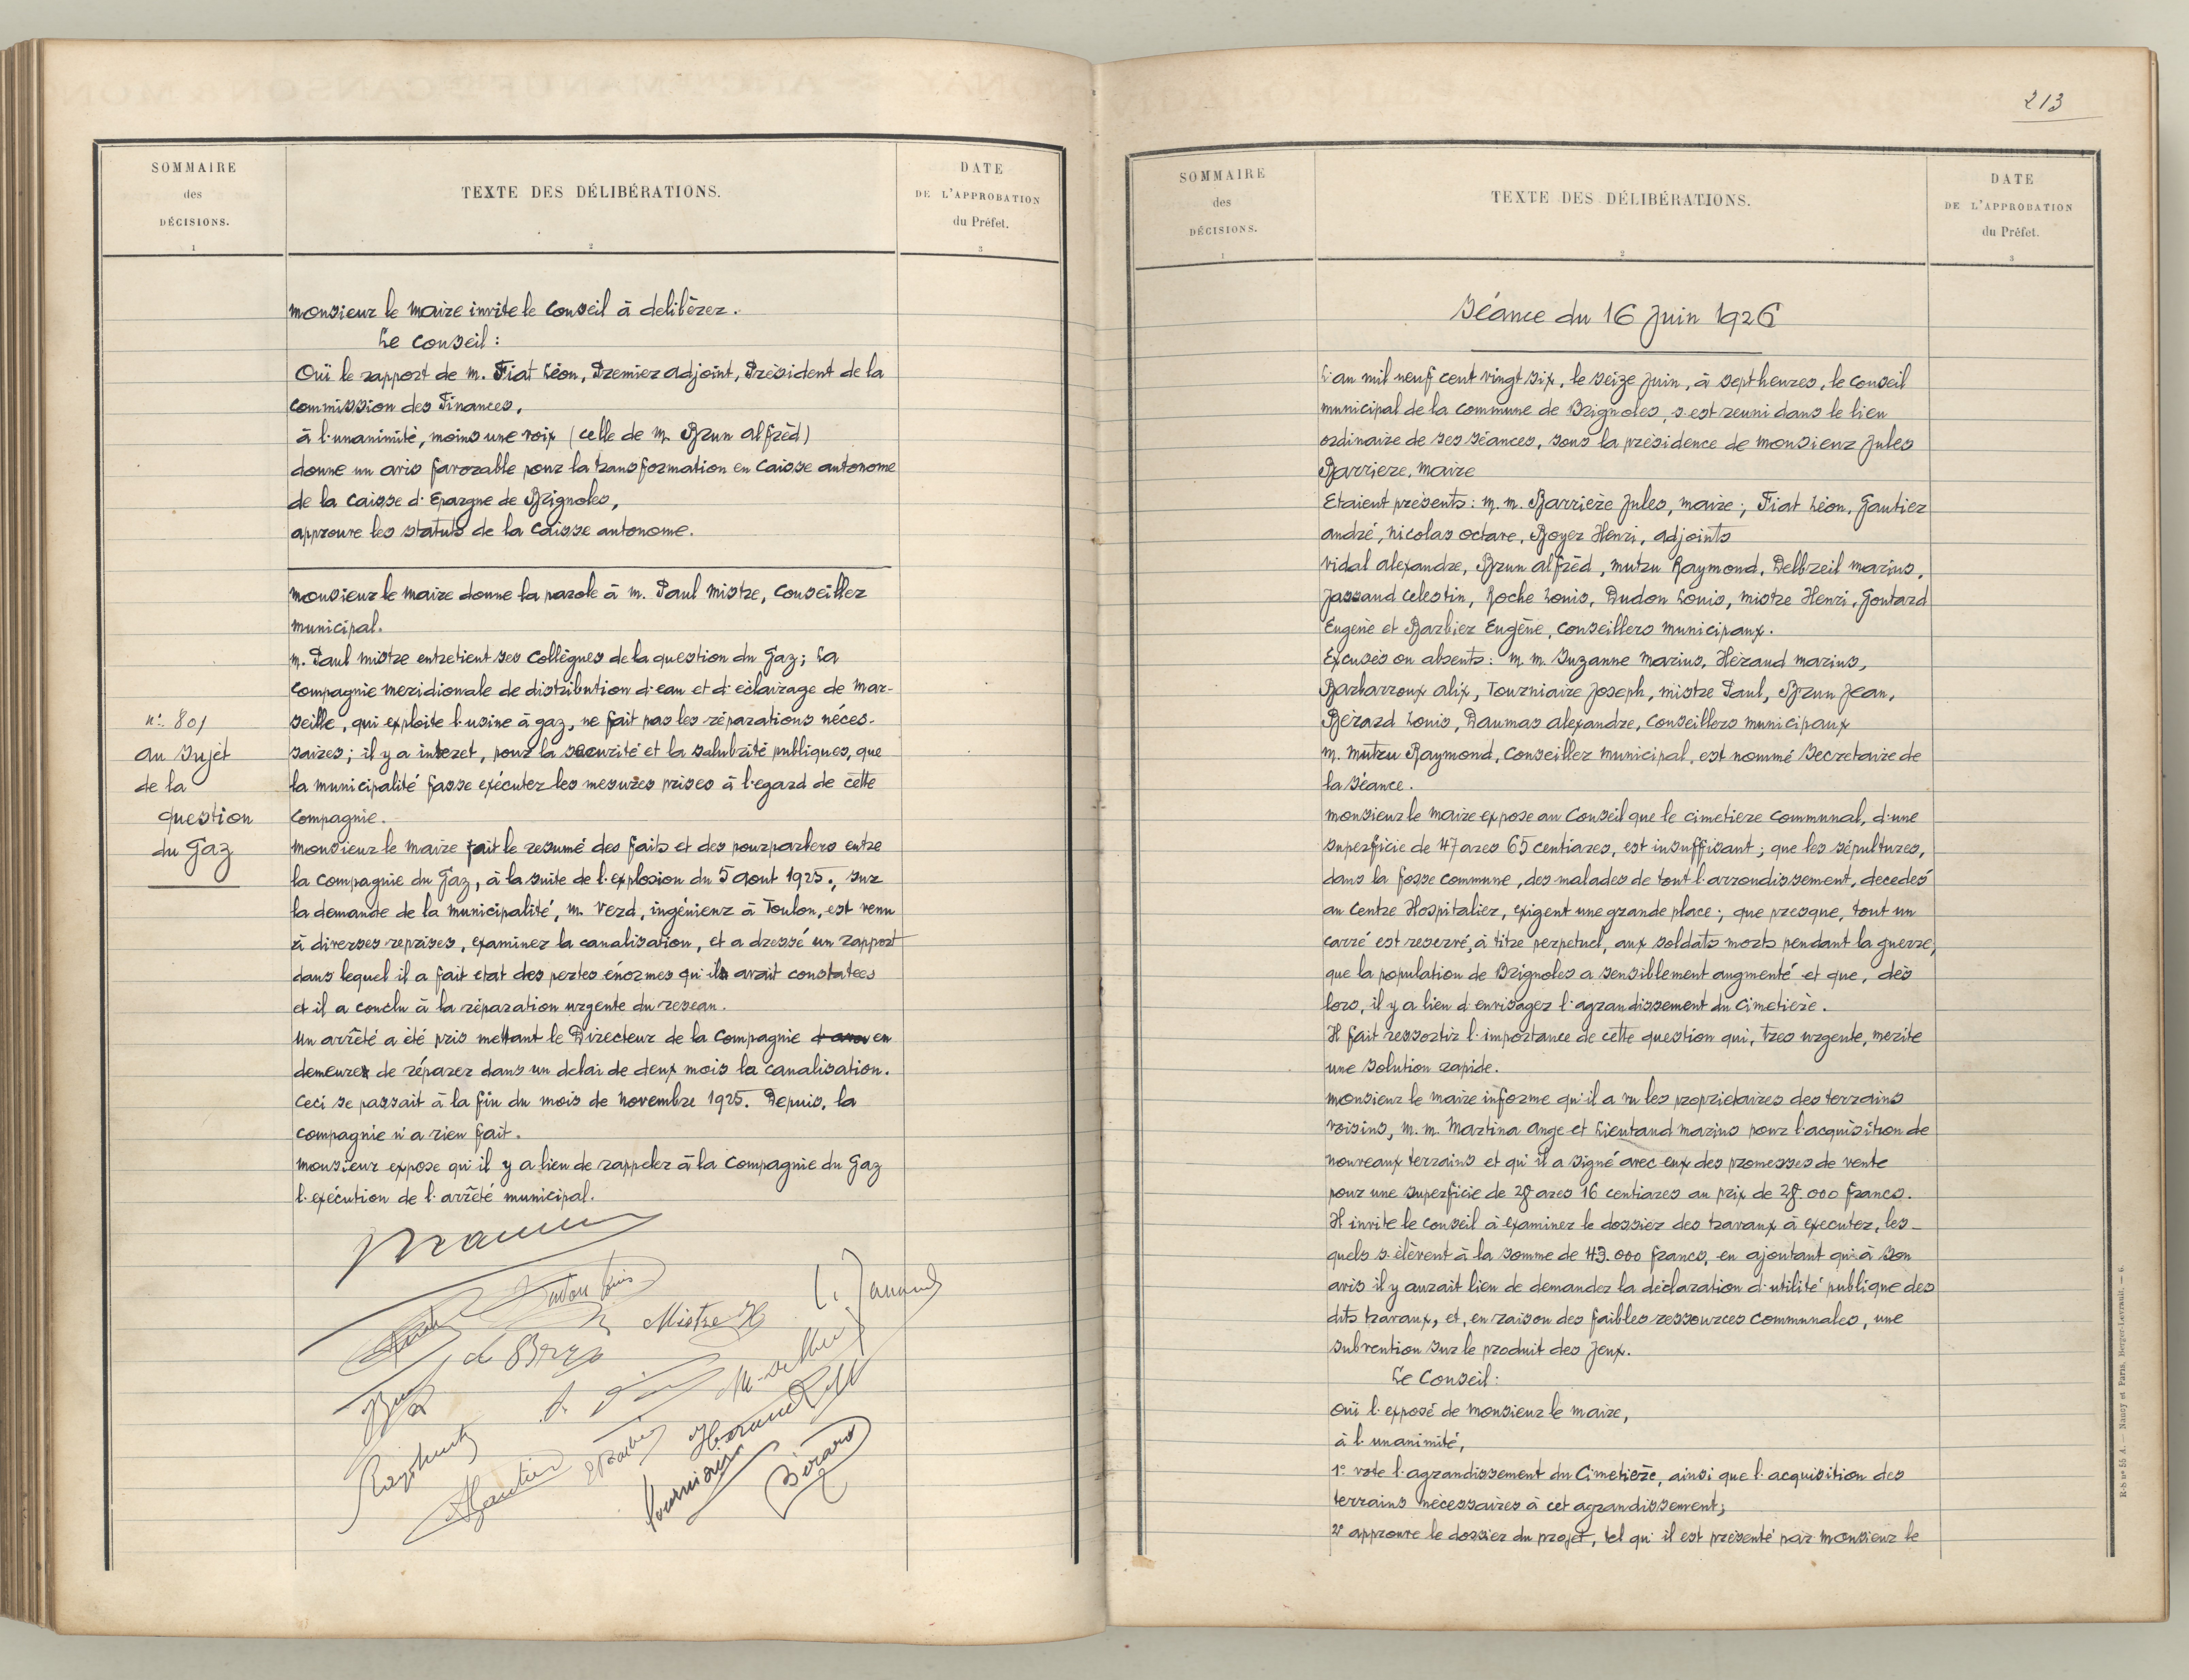 SOMMAIRE
des
DÉCISIONS.
1
TEXTE DES DÉLIBÉRATIONS.
2
DATE
DE L'APPROBATION
du Préfet.
3
monsieur le maire invite le Conseil à delibèrer.
Le Conseil :
Ouï le rapport de m. Fiat Léon, Premier adjoint, Président de la
Commission des Finances,
à l'unanimité, moins une voix (celle de m. Brun alfrèd)
donne un avis favorable pour la transformation en Caisse autonome
de la Caisse d'Epargne de Brignoles,
approuve les statuts de la Caisse autonome.
monsieur le maire donne la parole à m. Paul mistre, Conseiller
municipal.
m. Paul mistre entretient ses Collègues de la question du Gaz ; La
Compagnie meridionale de distribution d'eau et d'éclairage de mar-
seille, qui exploite l'usine à gaz, ne fait pas les réparations néces-
saires ; il y a interet, pour la securité et la salubrité publiques, que
la municipalité fasse exécuter les mesures prises à l'egard de cette
Compagnie.
n° 801
au sujet
de la
question
du Gaz
monsieur le maire fait le resumé des faits et des pourparlers entre
la compagnie du Gaz, à la suite de l'explosion du 5 aout 1925., sur
la demande de la municipalité, m. Verd, ingénieur à Toulon, est venu
à diverses reprises, examiner la canalisation, et a dressé un rapport
dans lequel il a fait etat des pertes énormes qu'il avait constatees
et il a conclu à la réparation urgente du reseau.
un arrêté a été pris mettant le Directeur de la Compagnie en
demeure de réparer dans un delai de deux mois la canalisation.
Ceci se passait à la fin du mois de novembre 1925. Depuis, la
compagnie n'a rien fait.
monsieur expose qu'il y a lieu de rappeler à la Compagnie du Gaz
l'exécution de l'arrêté municipal.
Mistre H
Gautier
Bérard
213
SOMMAIRE
des
DÉCISIONS.
1
TEXTE DES DÉLIBÉRATIONS.
2
DATE
DE L'APPROBATION
du Préfet.
3
Séance du 16 Juin 1926
L'an mil neuf cent vingt six, le seize Juin, à sept heures, le Conseil
municipal de la commune de Brignoles, s'est reuni dans le lieu
ordinaire de ses séances, sous la présidence de monsieur Jules
Barriere, maire
Etaient présents : m. m. Barrière Jules, maire ; Fiat Léon, Gautier
andré, nicolas octave, Boyer Henri, adjoints
vidal alexandre, Brun alfrèd, mutru Raymond, Delbreil marius,
Jassaud Celestin, Roche Louis, Dudon Louis, mistre Henri, Goutard
Eugene et Barbier Eugène, conseillers municipaux.
Excusés ou absents : m. m. Suzanne marius, Héraud marius,
Barbarroux alix, Tourniaire Joseph, mistre Paul, Brun Jean,
Bérard Louis, Daumas alexandre, Conseillers municipaux
m. mutru Raymond, Conseiller municipal, est nommé Secretaire de
la Séance.
monsieur le maire expose au Conseil que le cimetiere Communal, d'une
superficie de 47 ares 65 centiares, est insuffisant ; que les sépultures,
dans la fosse commune, des malades de tout l'arrondissement, decedes
au Centre Hospitalier, exigent une grande place ; que presque, tout un
carré est reservé, à titre perpetuel, aux soldats morts pendant la guerre,
que la population de Brignoles a sensiblement augmenté et que, dès
lors, il y a lieu d'envisager l'agrandissement du Cimetière.
Il fait ressortir l'importance de cette question qui, tres urgente, merite
une solution rapide.
monsieur le maire informe qu'il a vu les proprietaires des terrains
voisins, m. m. Martina Ange et Lieutaud marius pour l'acquisition de
nouveaux terrains et qu'il a signé avec eux des promesses de vente
pour une superficie de 28 ares 16 centiares au prix de 28.000 francs.
Il invite le conseil à examiner le dossier des travaux à executer, les-
quels s'élèvent à la somme de 43.000 francs, en ajoutant qu'à son
avis il y aurait lieu de demander la déclaration d'utilité publique des
dits travaux, et, en raison des faibles ressources communales, une
subvention sur le produit des Jeux.
Le Conseil :
ouï l'exposé de monsieur le maire,
à l'unanimité,
1° vote l'agrandissement du Cimetière, ainsi que l'acquisition des
terrains nécessaires à cet agrandissement ;
2° approuve le dossier du projet, tel qu'il est présenté par monsieur le
R-S n° 55 A. — Nancy et Paris, Berger-Levrault. — 6.